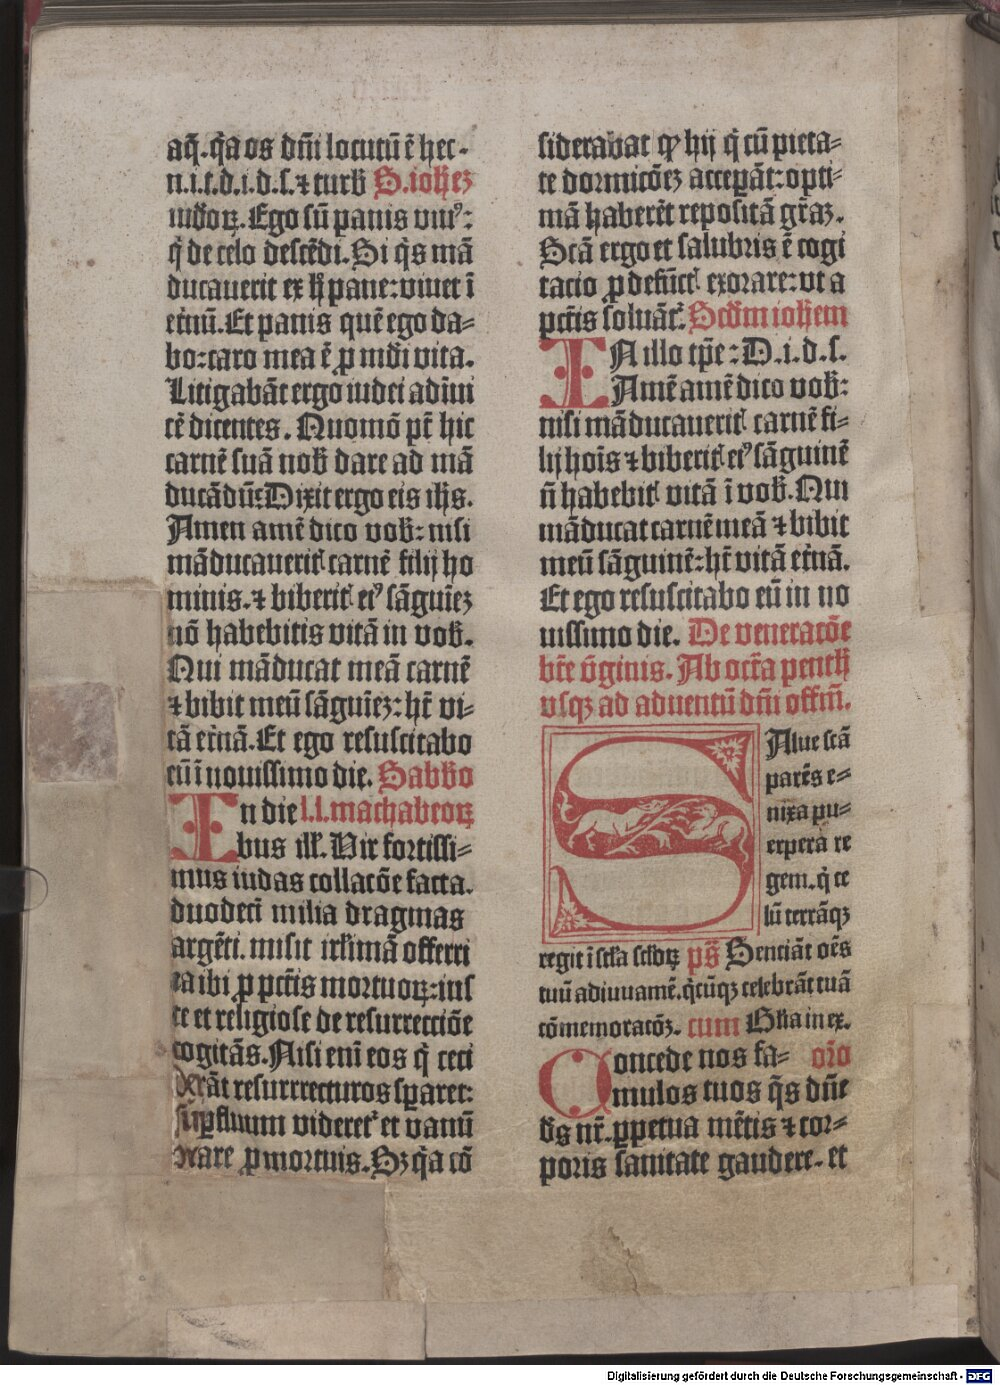 aq̄. q̄a os dn̄i locutū ē hec.
n.i.t.d.i.d.s.⁊ turb̄ S.ioh̄ez
iudeoꝝ. Ego sū panis viu⁹:
q̄ de celo descēdi. Si q̄s mā
ducauerit ex h̄ pane: viuet ī
et̄nū. Et panis quē ego da⸗
bo: caro mea ē ꝓ mūdi vita.
Litigabāt ergo iudei adīui
cē dicentes. Quomō pt̄ hic
carnē suā nob̄ dare ad mā
ducādū: Dixit ergo eis ihs̄.
Amen amē dico vob̄: nisi
māducaueritꝭ carnē filij ho
minis. ⁊ biberitꝭ ei⁹ sāguīez
nō habebitis vitā in vob̄.
Qui māducat meā carnē
⁊ bibit meū sāguīez: ht̄ vi⸗
tā et̄nā. Et ego resuscitabo
eū ī nouissimo die. Sabb̄o
In die l.l. machabeoꝝ
bus ill̄. Vir fortissi⸗
mus iudas collacōe facta.
duodecī milia dragmas
argēti. misit irl̄imā offerri
ea ibi ꝓ pctīs mortuoꝝ: ius
te et religiose de resurrectiōe
cogitās. Nisi enī eos q̄ ceci
derāt resurrrecturos sꝑaret:
suꝑfluum videret᷑ et vanū
orare ꝓ mortuis. Sꝫ q̄a cō
siderabat ꝙ hij q̄ cū pieta⸗
te dormicōez acceꝑāt: opti⸗
mā haberēt repositā gr̄az.
Scā ergo et salubris ē cogi
tacio ꝓ defūctꝭ exorare: vt a
pctīs soluāt᷑. Scd̄m ioh̄em
IN illo tp̄e: D.i.d.s.
Amē amē dico vob̄:
nisi māducaueritꝭ carnē fi⸗
lij hoīs ⁊ biberitꝭ ei⁹ sāguinē
n̄ habebitꝭ vitā ī vob̄. Qui
māducat carnē meā ⁊ bibit
meū sāguinē: ht̄ vitā et̄nā.
Et ego resuscitabo eū in no
uissimo die. De veneracōe
btē v̄ginis. Ab oct̄a penth̄
vsqꝫ ad aduentū dn̄i offm̄.
SAlue scā
parēs e⸗
nixa pu⸗
erpera re
gem. q̄ ce
lū terrāqꝫ
regit ī sc̄la sc̄loꝝ ps̄ Senciāt oēs
tuū adiuuamē. q̄cūqꝫ celebrāt tuā
cōmemoracōꝫ. cum Gl̄ia in ex.
Concede nos fa⸗ or̄o
mulos tuos q̄s dn̄e
ds̄ nr̄. ꝑpetua mētis ⁊ cor⸗
poris sanitate gaudere. et
Digitalisierung gefördert durch die Deutsche Forschungsgemeinschaft - DFG